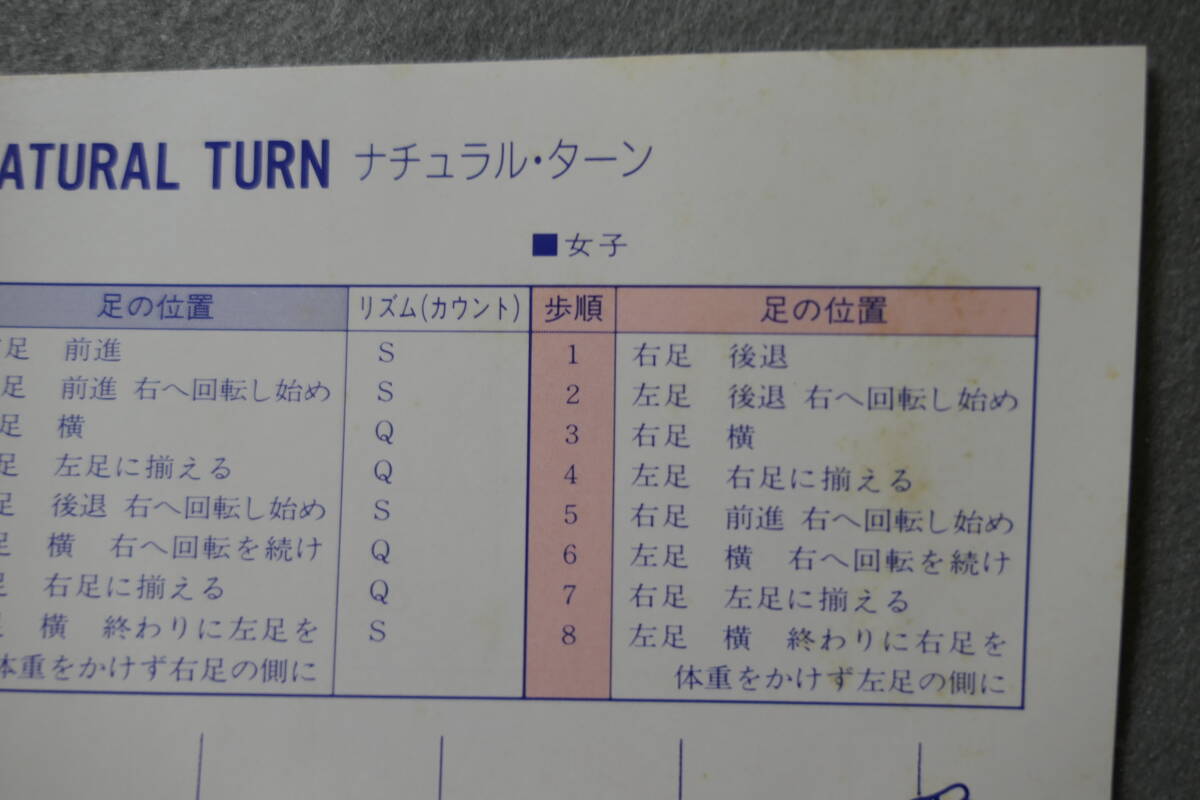 ATURAL TURN ナチュラル・ターン
■女子
足の位置 リズム(カウント) 歩順 足の位置
足 前進 S 1 右足 後退
足 前進 右へ回転し始め S 2 左足 後退 右へ回転し始め
足 横 Q 3 右足 横
足 左足に揃える Q 4 左足 右足に揃える
足 後退 右へ回転し始め S 5 右足 前進 右へ回転し始め
足 横 右へ回転を続け Q 6 左足 横 右へ回転を続け
足 右足に揃える Q 7 右足 左足に揃える
横 終わりに左足を S 8 左足 横 終わりに右足を
体重をかけず右足の側に 体重をかけず左足の側に